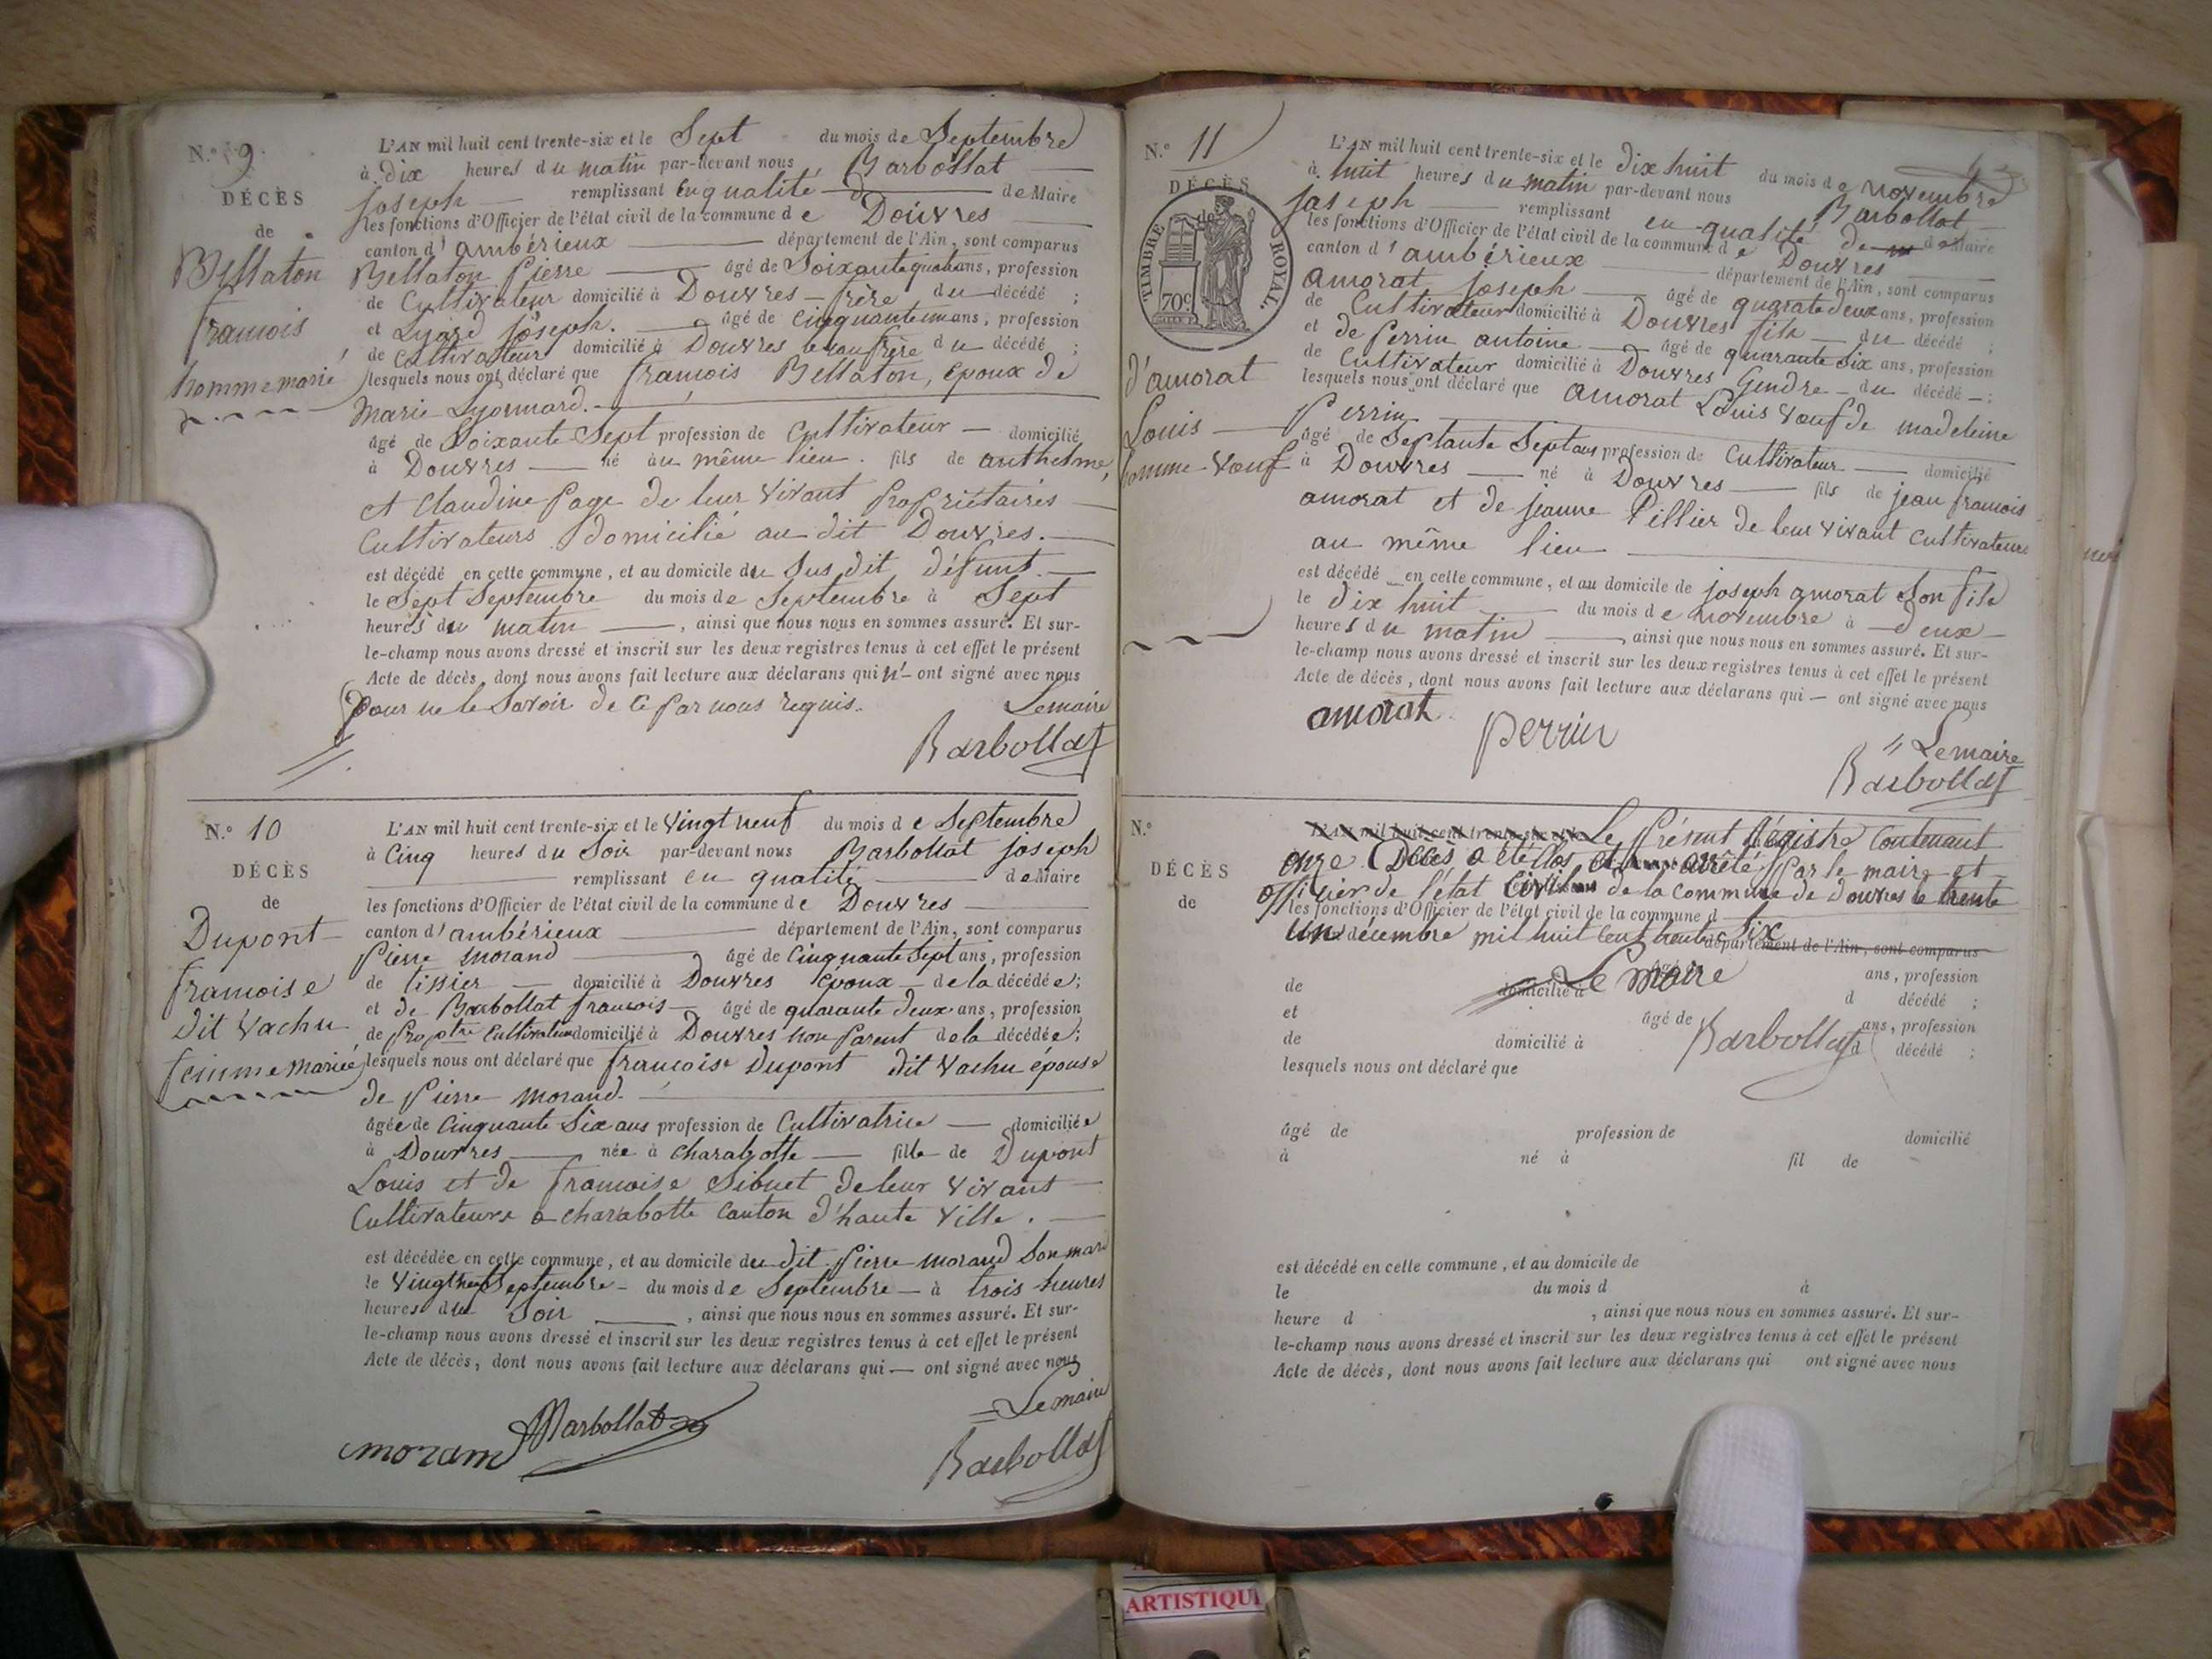 N.° 9
DÉCÈS
de
Bellaton
francois
homme marié
L'AN mil huit cent trente-six et le Sept du mois de Septembre
à Dix heures du matin par-devant nous Barbollat
joseph remplissant en qualité de Maire
les fonctions d'Officier de l'état civil de la commune de Douvres
canton d'ambérieux département de l'Ain, sont comparus
Bellaton Pierre âgé de Soixante quatre ans, profession
de Cultivateur domicilié à Douvres frère du décédé ;
et Lyard joseph. âgé de Cinquante un ans, profession
de Cultivateur domicilié à Douvres beaufrère du décédé ;
lesquels nous ont déclaré que francois Bellaton, époux de
Marie Lyonnard.
âgé de Soixante Sept profession de Cultivateur domicilié
à Douvres né au même lieu. fils de anthelme,
et Claudine Page de leur vivant Propriétaires
Cultivateurs Domicilié au dit Douvres.
est décédé en cette commune, et au domicile du Sus dit défunt.
le Sept Septembre du mois de Septembre à Sept
heures du matin, ainsi que nous nous en sommes assuré. Et sur-
le-champ nous avons dressé et inscrit sur les deux registres tenus à cet effet le présent
Acte de décès, dont nous avons fait lecture aux déclarans qui n'ont signé avec nous
Pour ne le Savoir de Ce Par nous requis. Lemaire
Barbollat
N.° 10
DÉCÈS
de
Dupont
francoise
dit Vachu
femme mariée
L'AN mil huit cent trente-six et le Vingt neuf du mois de Septembre
à Cinq heures du Soir par-devant nous Barbollat joseph
remplissant en qualité de Maire
les fonctions d'Officier de l'état civil de la commune de Douvres
canton d'ambérieux département de l'Ain, sont comparus
Pierre Morand âgé de Cinquante Sept ans, profession
de tissier domicilié à Douvres époux de la décédée;
et de Barbollat francois âgé de quarante deux ans, profession
de Proptre Cultivateur domicilié à Douvres non Parent de la décédée;
lesquels nous ont déclaré que francoise Dupont dit Vachu épouse
de Pierre Morand.
âgée de Cinquante Six ans profession de Cultivatrice domiciliée
à Douvres née à Charabotte fille de Dupont
Louis et de francoise Sibuet de leur vivant
Cultivateurs a Charabotte Canton d'haute Ville.
est décédée en cette commune, et au domicile du dit Pierre Morand Son mari
le Vingt neuf Septembre du mois de Septembre à trois heures
heures du Soir, ainsi que nous nous en sommes assuré. Et sur-
le-champ nous avons dressé et inscrit sur les deux registres tenus à cet effet le présent
Acte de décès, dont nous avons fait lecture aux déclarans qui ont signé avec nous
Lemaire
morand Barbollat Barbollat
N.° 11
DÉCÈS
de
TIMBRE ROYAL.
70c
d'amorat
Louis
homme Veuf
L'AN mil huit cent trente-six et le Dix huit du mois de Novembre
à huit heures du matin par-devant nous Barbollat
joseph remplissant en qualité de Maire
les fonctions d'Officier de l'état civil de la commune de Douvres
canton d'ambérieux département de l'Ain, sont comparus
amorat joseph âgé de quarate deux ans, profession
de Cultivateur domicilié à Douvres fils du décédé ;
et de Perrin antoine âgé de quarante Six ans, profession
de Cultivateur domicilié à Douvres Gendre du décédé ;
lesquels nous ont déclaré que amorat Louis Veuf de madeleine
Perrin
âgé de Septante Sept ans profession de Cultivateur domicilié
à Douvres né à Douvres fils de jean francois
amorat et de jeanne Pillier de leur vivant Cultivateurs
au même lieu
est décédé en cette commune, et au domicile de joseph amorat Son fils
le Dix huit du mois de Novembre à deux
heures du matin, ainsi que nous nous en sommes assuré. Et sur-
le-champ nous avons dressé et inscrit sur les deux registres tenus à cet effet le présent
Acte de décès, dont nous avons fait lecture aux déclarans qui ont signé avec nous
amorat Perrin Lemaire
Barbollat
N.°
DÉCÈS
de
L'AN mil huit cent trente-six et le Le Présent Régistre Contenant
onze Décès a été Clos et arrêté Par le maire et
officier de l'état Civil de la Commune de Douvres le trente
les fonctions d'Officier de l'état civil de la commune d
un décembre mil huit Cent trente Six
département de l'Ain, sont comparus
âgé de ans, profession
de domicilié à Le Maire d décédé ;
et âgé de ans, profession
de domicilié à Barbollat d décédé ;
lesquels nous ont déclaré que
âgé de profession de domicilié
à né à fil de
est décédé en cette commune, et au domicile de
le du mois d à
heure d , ainsi que nous nous en sommes assuré. Et sur-
le-champ nous avons dressé et inscrit sur les deux registres tenus à cet effet le présent
Acte de décès, dont nous avons fait lecture aux déclarans qui ont signé avec nous
ARTISTIQU